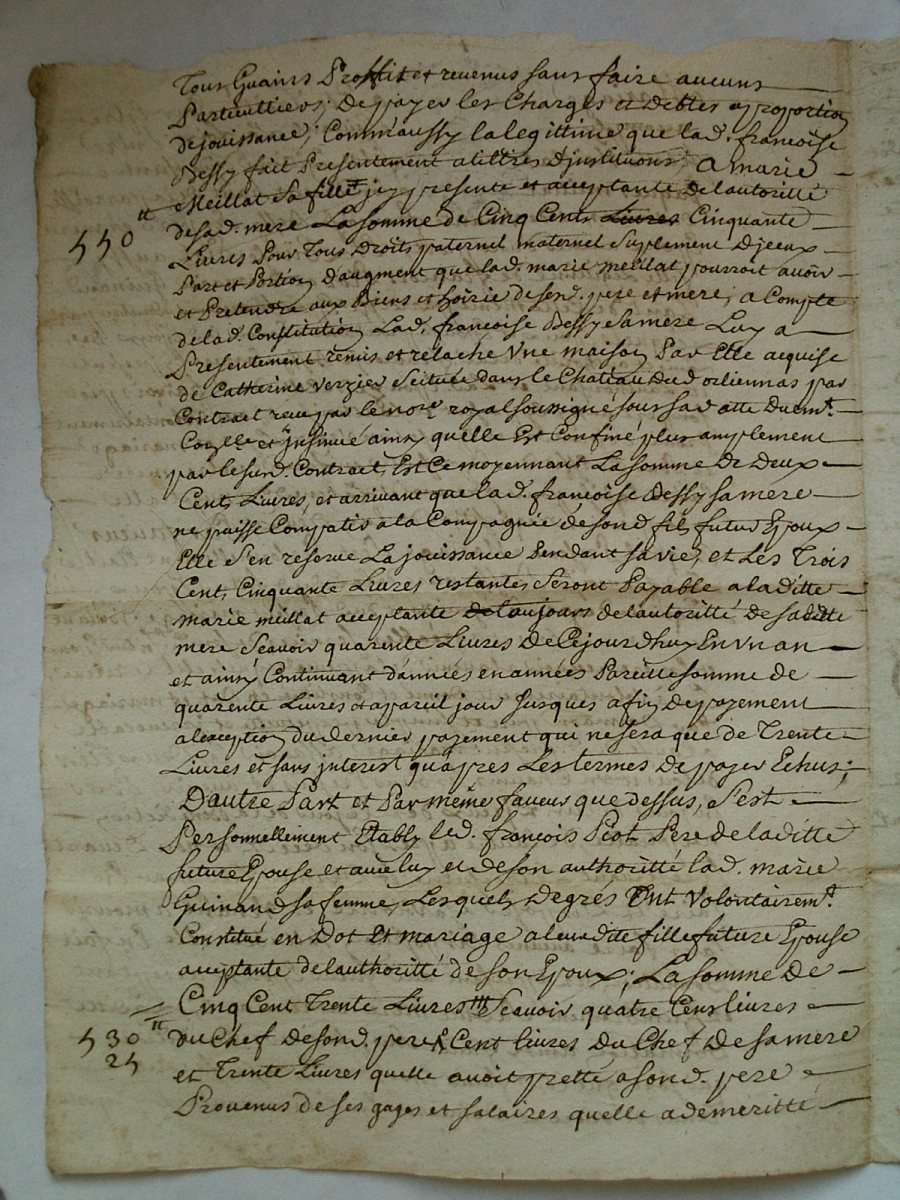 Tous Guains Proffit et revenus sans faire aucuns
Particulliers; De payer les Charges et Debtes a proportion
de jouissance; Comm'aussy la legittime que lad. francoise
Dessy fait Presentement a tiltres Djnstitution; a marie
Meillat sa fille jcy presente et acceptante De l'autoritté
de sad. mere La somme de Cinq Cents Livres Cinquante
550 ᵗᵗ
Livres Pour Tous Droits paternel maternel suplement Djceux
Part et Portion d'augment que lad. marie meillat pourroit avoir
et Pretendre aux Biens et hoirie de sesd. pere et mere; a Compte
de lad. Constitution Lad. francoise Dessy sa mere Luy a
Presentement remis et relaché Vne maison Par Elle acquise
de Catherine Verzier scituée dans le Chateau Dud. orliennas par
Contract receu par le nore. royal soussigné sous sa datte Duemt.
et jnsinué ainsy quelle Est Confiné plus amplement
par le susd. Contract, Est Ce moyennant La somme De Deux
Cents Livres, et arrivant que lad. francoise Dessy sa mere
ne puisse Compatir a la Compagnée de sond. fils futur Epoux
Elle s'en reserve La jouissance Pendant sa vie, et Les Trois
Cents Cinquante Livres restantes seront Payable a laditte
marie meillat acceptante de l'autoritté de saditte
mere scavoir quarente Livres De Cejourdhuy En Vn an
et ainsy Continuant d'années en années Pareille somme de
quarente Livres et a pareil jour Jusques a fin De payement
a lexception du dernier payement qui ne sera que de Trente
Livres et sans interest qu'apres Les termes De payer Echus;
D'autre Part et Par même faveur que dessus, s'est
Personnellement Etably led. françois Piot Pere de laditte
future Epouse et avec luy et de son authoritté lad. marie
Guinand sa femme, Lesquels De grés Ont Volontairemt.
Constitué en Dot Et mariage a leurdite fille future Epouse
acceptante de l'authoritté de son Epoux; La somme De
Cinq Cent Trente Livres scavoir quatre Cens livres
530 ᵗᵗ
du Chef de sond. pere & Cent livres Du Chef De sa mere
25
et Trente Livres quelle avoit pretté a sond. pere
Provenus de ses gages et salaires quelle a demeritté